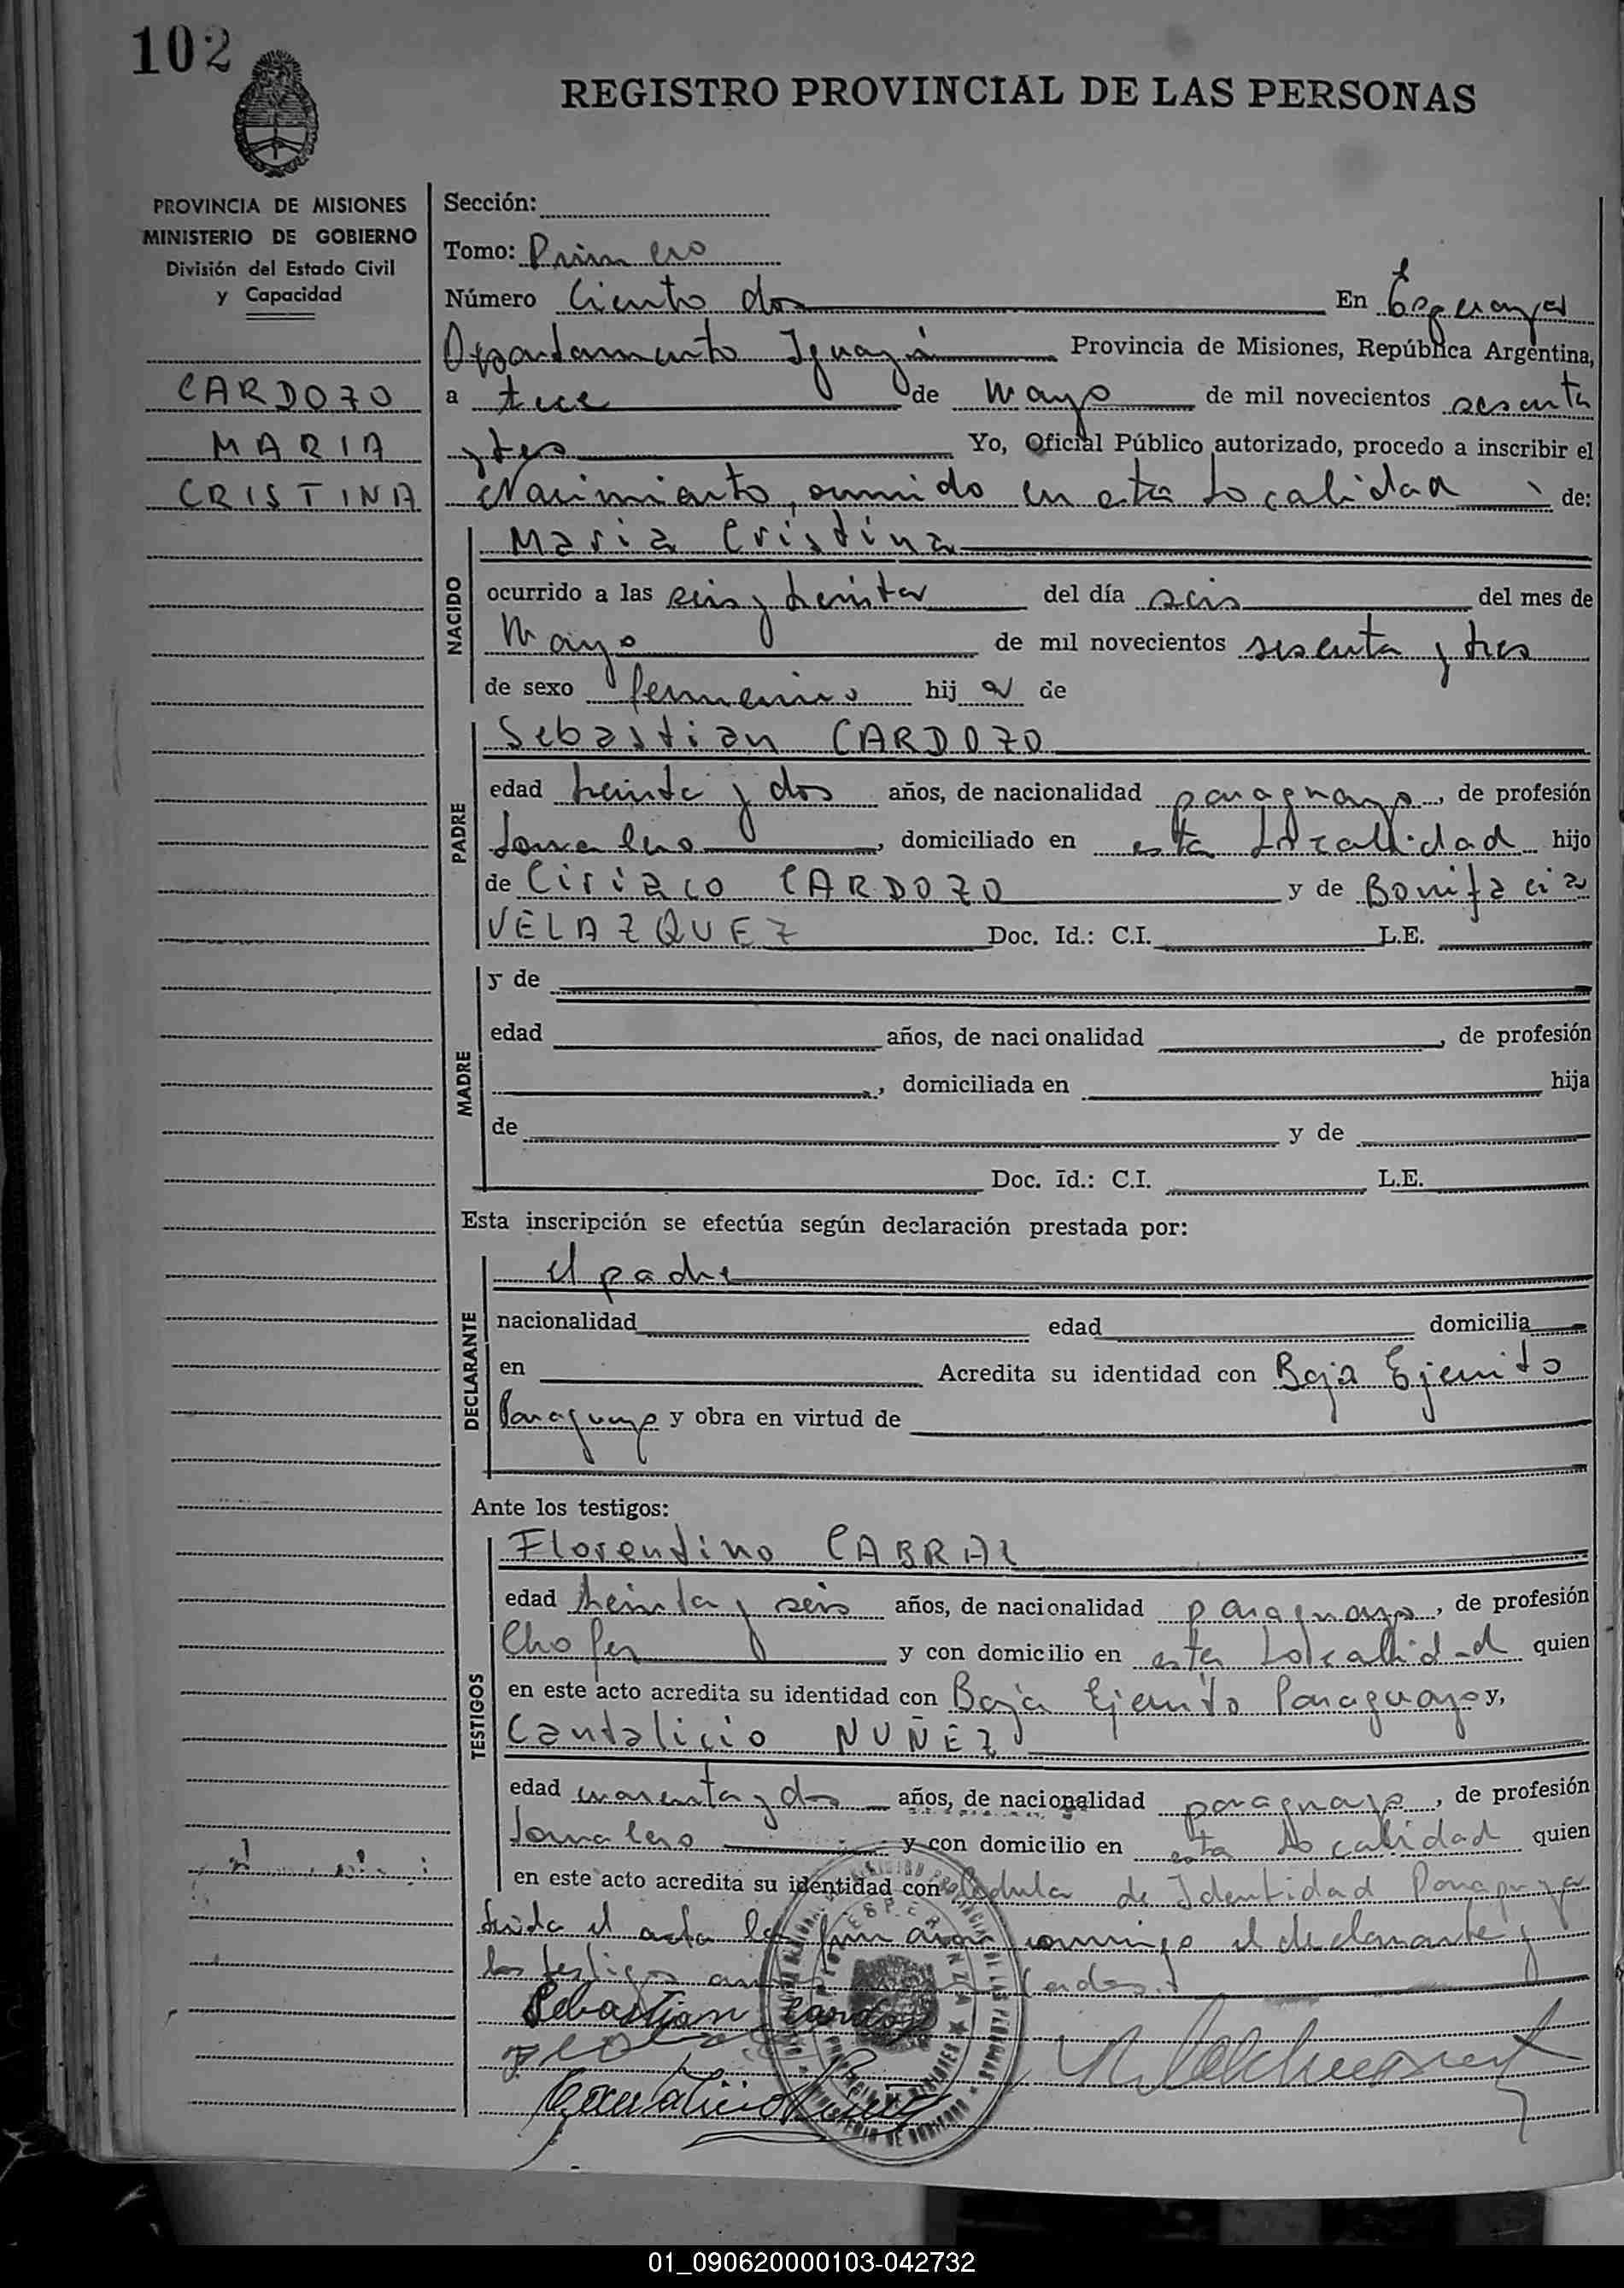 102
REGISTRO PROVINCIAL DE LAS PERSONAS
PROVINCIA DE MISIONES
MINISTERIO DE GOBIERNO
División del Estado Civil
y Capacidad
CARDOZO
MARIA
CRISTINA
Sección:
Tomo: Primero
Número Ciento dos En Esperanza
Departamento Iguazú Provincia de Misiones, República Argentina,
a trece de mayo de mil novecientos sesenta
y tres Yo, Oficial Público autorizado, procedo a inscribir el
Nacimiento, ocurrido en esta Localidad de:
NACIDO
Maria Cristina
ocurrido a las seis y treinta del día seis del mes de
Mayo de mil novecientos sesenta y tres
de sexo femenino hij a de
PADRE
Sebastian CARDOZO
edad treinta y dos años, de nacionalidad paraguayo, de profesión
Jornalero, domiciliado en esta Localidad hijo
de Ciriaco CARDOZO y de Bonifacia
VELAZQUEZ Doc. Id.: C.I. L.E.
MADRE
y de
edad años, de naci onalidad , de profesión
, domiciliada en hija
de y de
Doc. Id.: C.I. L.E.
Esta inscripción se efectúa según declaración prestada por:
DECLARANTE
el padre
nacionalidad edad domicilia
en Acredita su identidad con Baja Ejercito
Paraguayo y obra en virtud de
Ante los testigos:
TESTIGOS
Florentino CABRAL
edad treinta y seis años, de nacionalidad paraguayo, de profesión
Chofer y con domicilio en esta Localidad quien
en este acto acredita su identidad con Baja Ejercito Paraguayo y,
Cantalicio NUÑEZ
edad cuarenta y dos años, de nacionalidad paraguayo, de profesión
Jornalero y con domicilio en esta Localidad quien
en este acto acredita su identidad con Cedula de Identidad Paraguaya
Leida el acta la firman conmigo el declarante y
los testigos
Sebastian Cardozo
Cantalicio Nuñez
ESPERANZA
PROVINCIA DE MISIONES
MINISTERIO DE GOBIERNO
01_090620000103-042732